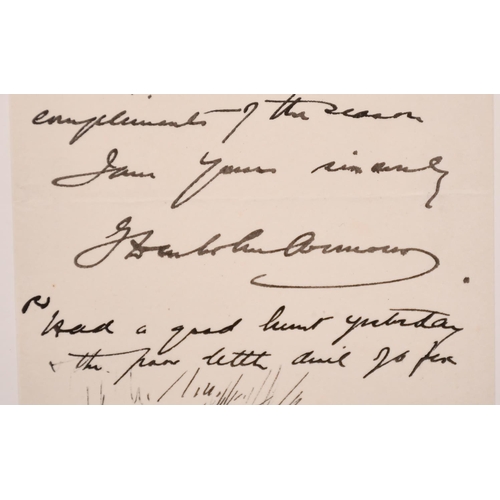 compliments of the season
I am Yours sincerely
G Denholm Armour
PS
Had a good hunt yesterday
the poor little devil of a fox